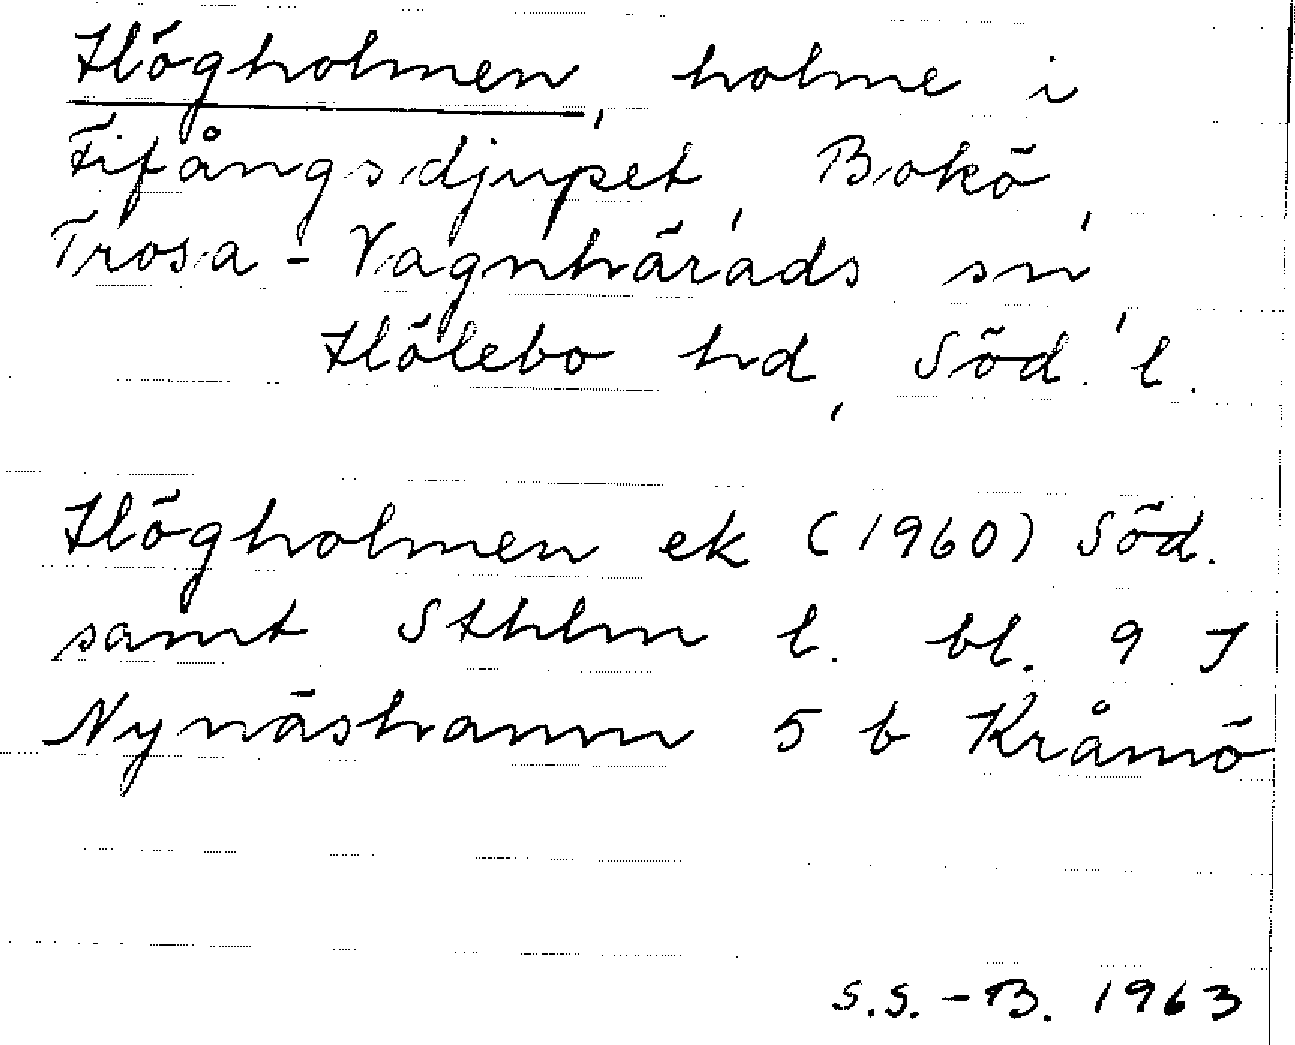 Högholmen, holme i
Fifångsdjupet, Bokö,
Trosa-Vagnhärads sn,
Hölebo hd, Söd. l.
Högholmen ek (1960) Söd.
samt Sthlm l. bl. 9 I
Nynäshamn 5 b Kråmö
S.S.-B. 1963